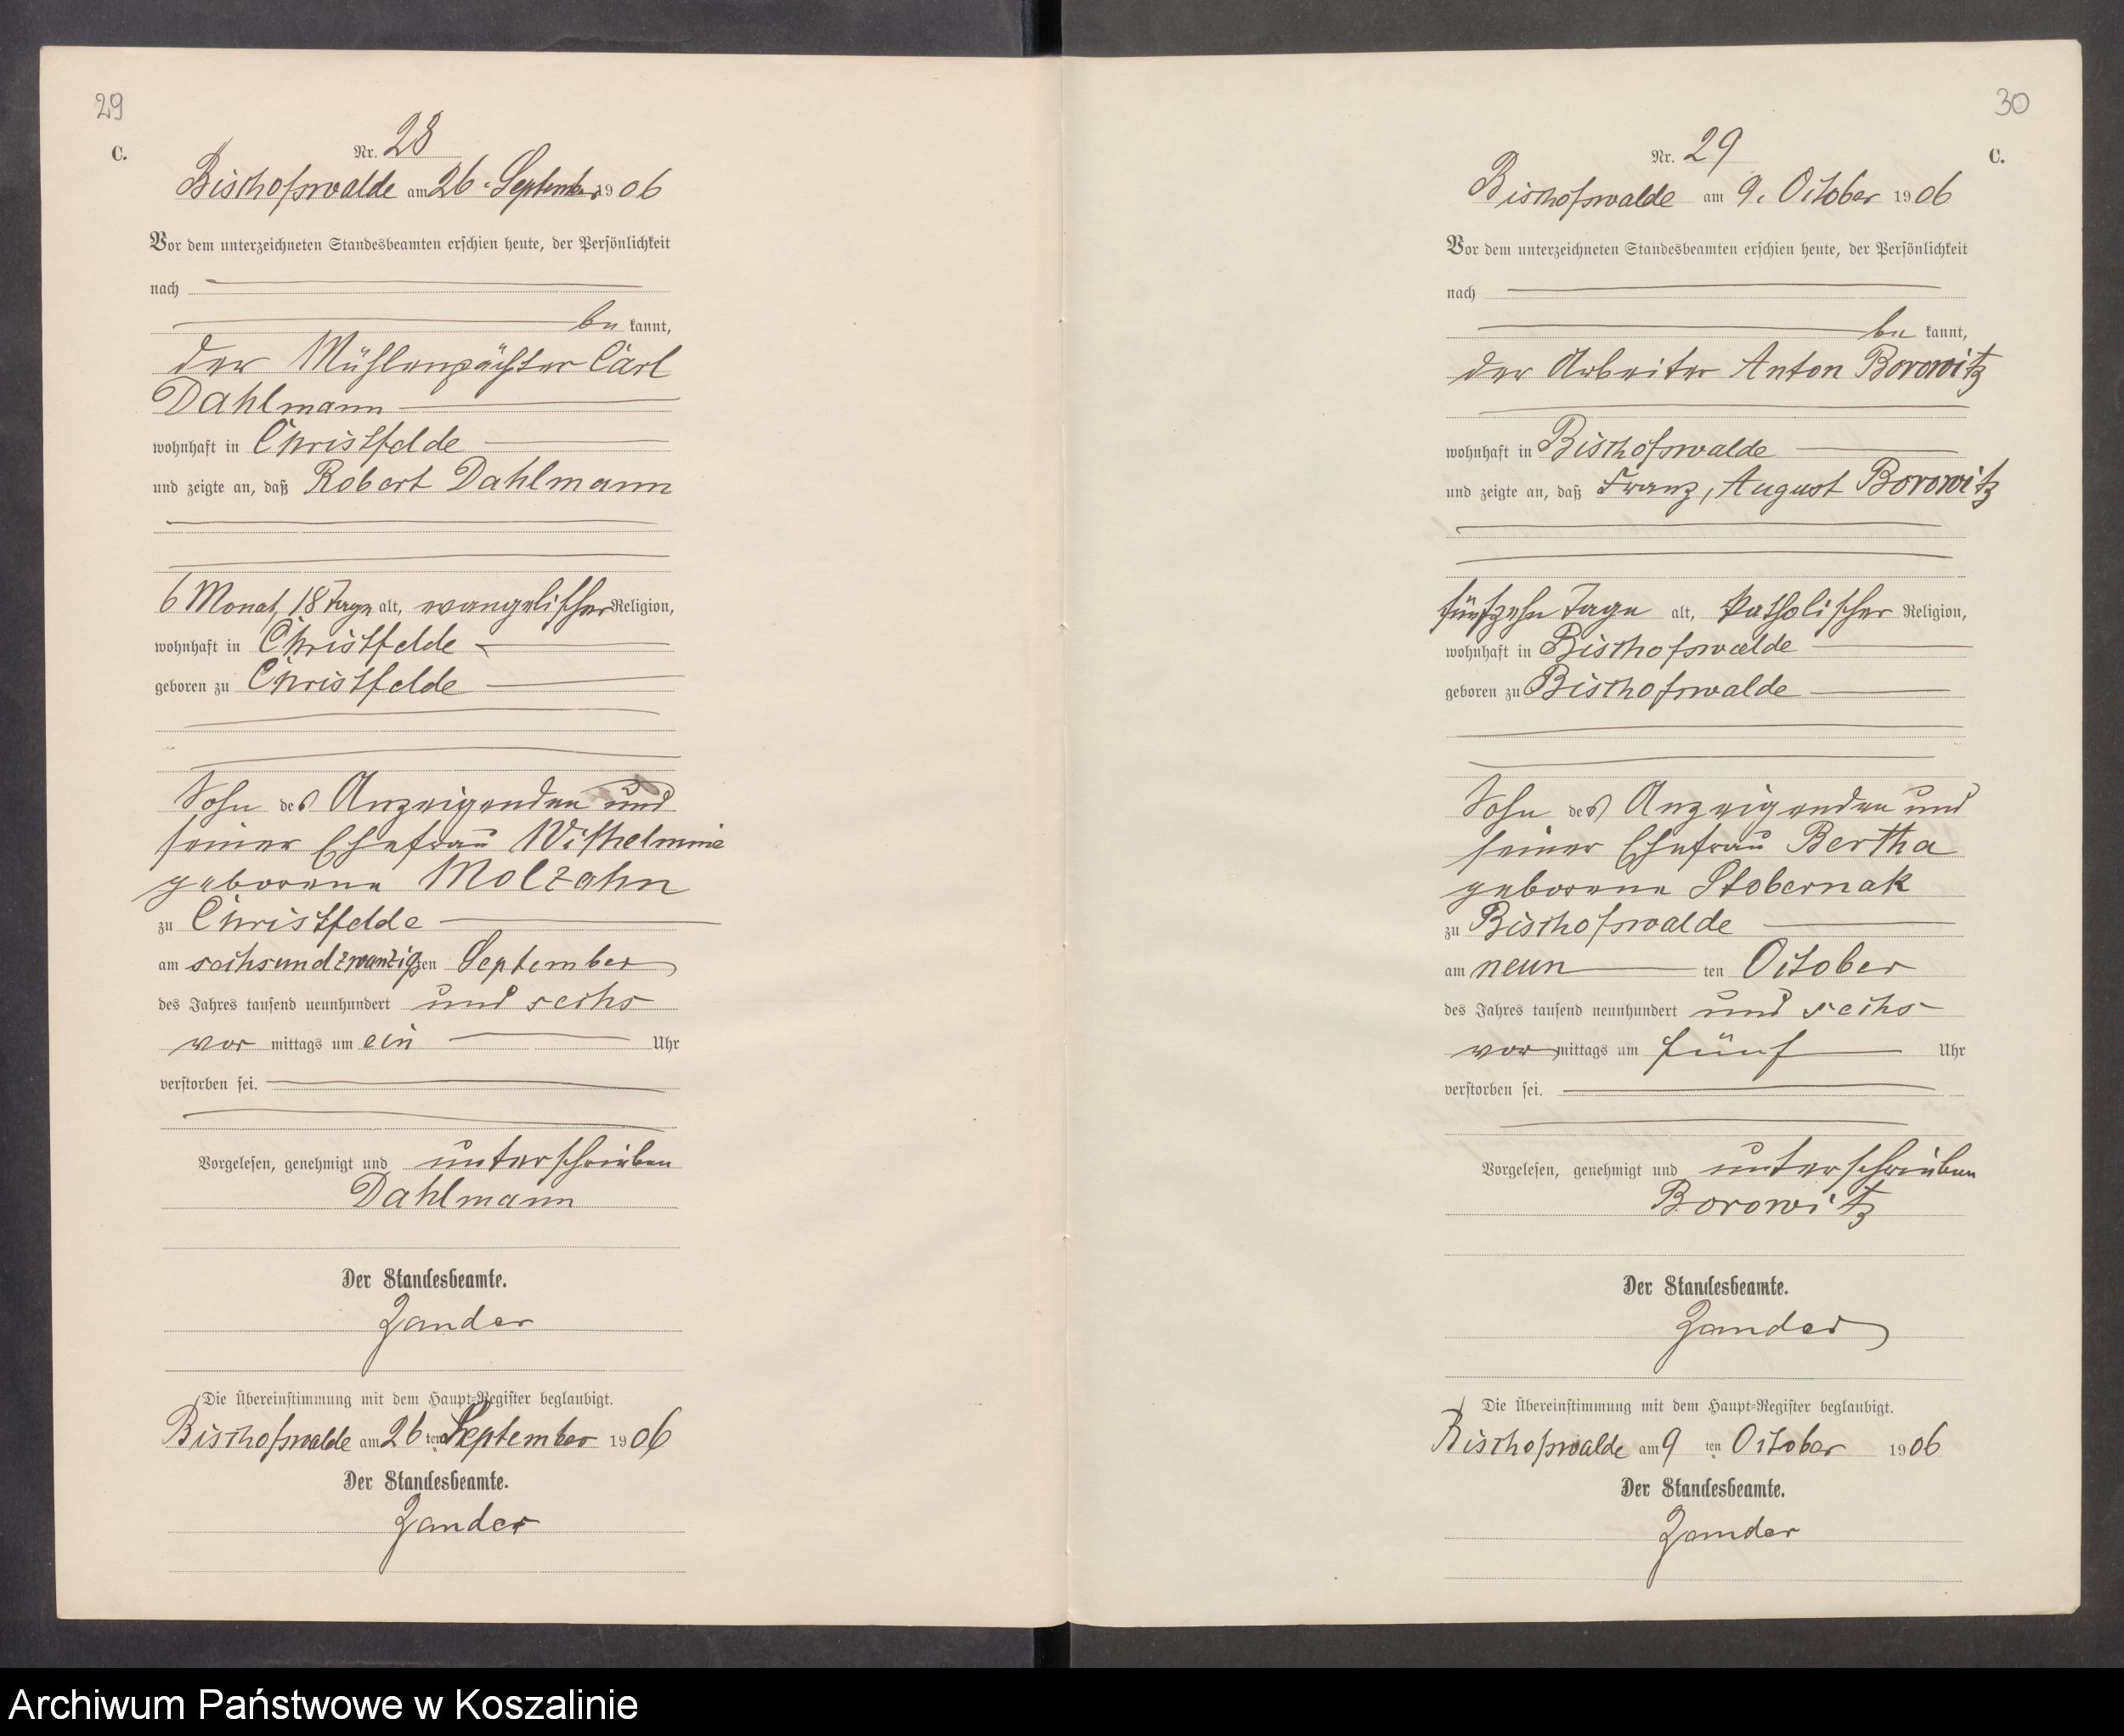 29
C.
Nr. 28
Bischofswalde am 26. September 1906
Vor dem unterzeichneten Standesbeamten erschien heute, der Persönlichkeit
nach
be kannt,
der Mühlenpächter Carl
Dahlmann
wohnhaft in Christfelde
und zeigte an, daß Robert Dahlmann
6 Monat, 18 Tage alt, evangelischer Religion,
wohnhaft in Christfelde
geboren zu Christfelde
Sohn des Anzeigenden und
seiner Ehefrau Wilhelmine
geborene Molzahn
zu Christfelde
am sechsundzwanzigsten September
des Jahres tausend neunhundert und sechs
vor mittags um ein Uhr
verstorben sei.
Vorgelesen, genehmigt und unterschrieben
Dahlmann
Der Standesbeamte.
Zander
Die Übereinstimmung mit dem Haupt-Register beglaubigt.
Bischofswalde am 26 ten September 1906
Der Standesbeamte.
Zander
30
C.
Nr. 29
Bischofswalde am 9. October 1906
Vor dem unterzeichneten Standesbeamten erschien heute, der Persönlichkeit
nach
be kannt,
der Arbeiter Anton Borowitz
wohnhaft in Bischofswalde
und zeigte an, daß Franz, August Borowitz
fünfzehn Tage alt, katholischer Religion,
wohnhaft in Bischofswalde
geboren zu Bischofswalde
Sohn des Anzeigenden und
seiner Ehefrau Bertha
geborene Stobernak
zu Bischofswalde
am neun ten October
des Jahres tausend neunhundert und sechs
vor mittags um fünf Uhr
verstorben sei.
Vorgelesen, genehmigt und unterschrieben
Borowitz
Der Standesbeamte.
Zander
Die Übereinstimmung mit dem Haupt-Register beglaubigt.
Bischofswalde am 9 ten October 1906
Der Standesbeamte.
Zander
Archiwum Państwowe w Koszalinie